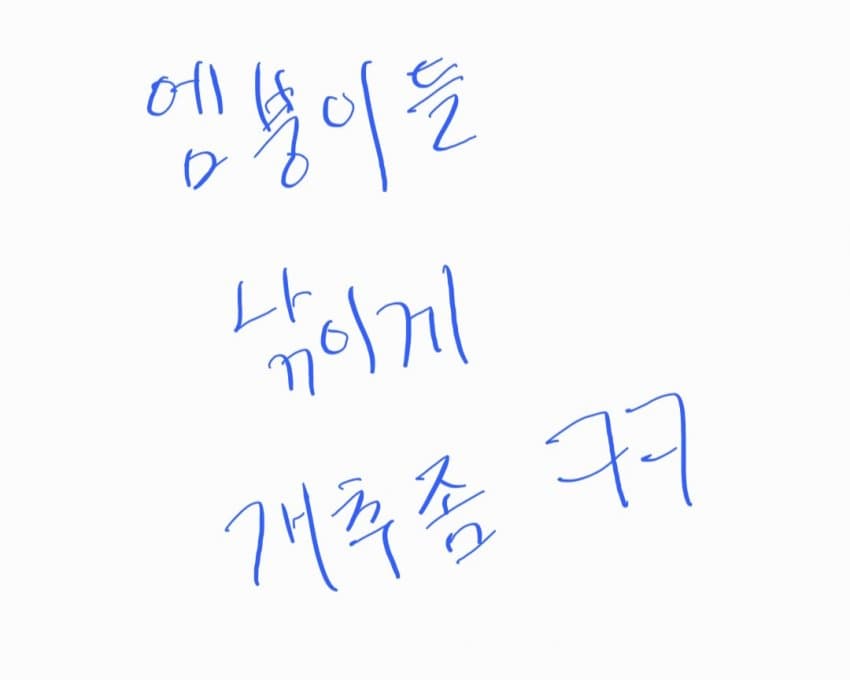 엠붕이들
낚이게
개추좀 ㅋㅋ